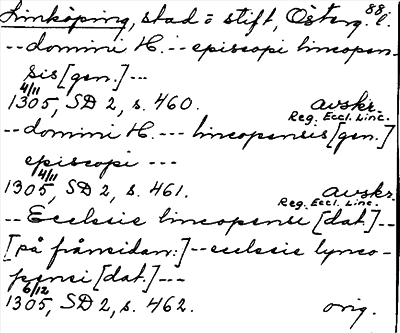 Linköping, stad o. stift, Österg. 88 l.
-- domini H. -- episcopi lincopen-
sis [gen.] ---
4/11
1305, SD 2, s. 460. avskr.
Reg. Eccl. Linc.
-- domini H. --- lincopensis [gen.]
episcopi ---
4/11
1305, SD 2, s. 461. avskr.
Reg. Eccl. Linc.
-- Ecclesie lincopensi [dat.] --
[på frånsidan:] -- ecclesie lynco-
pensi [dat.] ---
6/12
1305, SD 2, s. 462. orig.